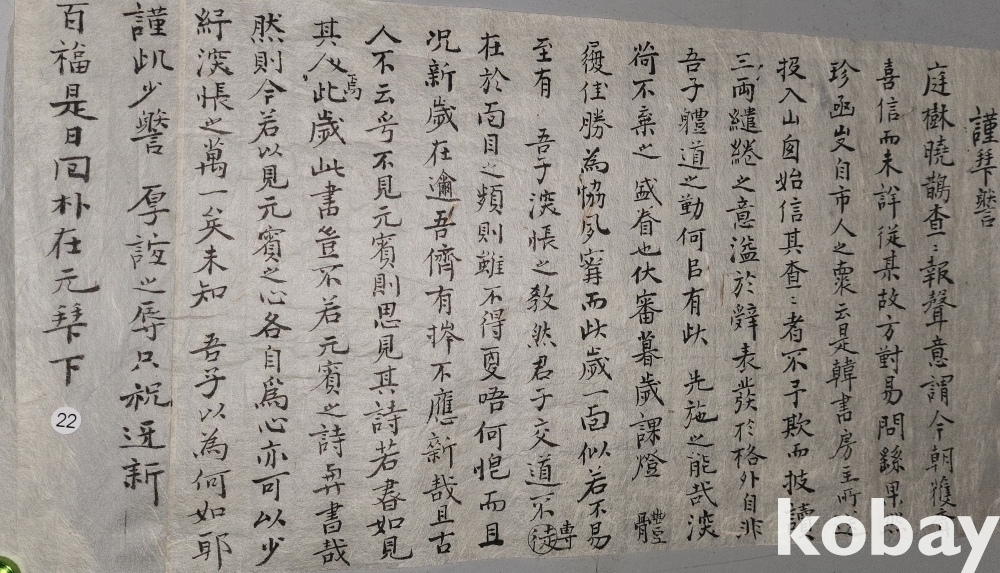 謹拜謝
庭樹曉鵲查〻報聲意謂今朝獲
喜信而未詳從某故方對易問繇果
珍函忽自市人之票云是韓書房主所
投入山囱始信其查〻者不予欺而披讀
三兩繾綣之意溢於辭表發於格外自非
吾子軆道之勤何㠯有此 先施之能哉深
荷不棄之 盛眷也伏審暮歲課燈 體
履佳勝為協夙寗而此歲一面似若不易
至有 吾子深悵之教然君子交道不徒專
在於面目之頻則雖不得更唔何悒而且
况新歲在邇吾儕有捽不應新哉且古
人不云乎不見元賓則思見其詩若書如見
其人焉此歲此書豈不若元賓之詩與書哉
然則令若以見元賓之心各自爲心亦可以少
紓深悵之萬一矣未知 吾子以為何如耶
謹此少謝 厚誼之辱只祝迓新
百福是日回朴在元拜下
22
kobay